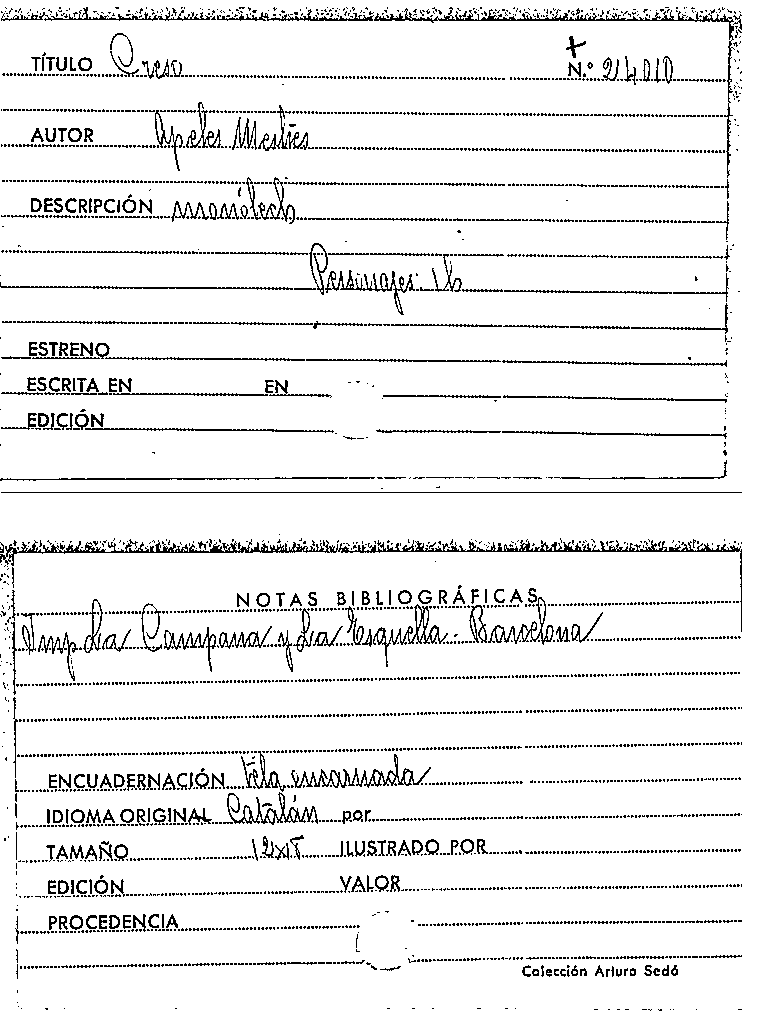 TÍTULO Creso
+
N.º 214010
AUTOR Apeles Mestres
DESCRIPCIÓN monólech
Personajes: 1 h
ESTRENO
ESCRITA EN EN
EDICIÓN
NOTAS BIBLIOGRÁFICAS
Imp La Campana y La Esquella. Barcelona
ENCUADERNACIÓN tela encarnada
IDIOMA ORIGINAL Catalán por
TAMAÑO ILUSTRADO POR
EDICIÓN VALOR
PROCEDENCIA
Colección Arturo Sedó